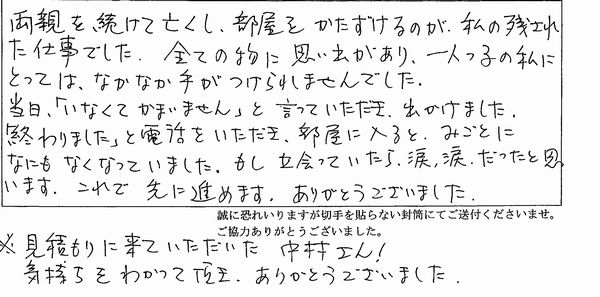 両親を続けて亡くし、部屋をかたずけるのが、私の残され
た仕事でした。全ての物に思い出があり、一人っ子の私に
とっては、なかなか手がつけられませんでした。
当日、「いなくてかまいません」と言っていただき、出かけました。
「終わりました」と電話をいただき、部屋に入ると、みごとに
なにもなくなっていました。もし立会っていたら、涙、涙、だったと思
います。これで先に進めます。ありがとうございました。
誠に恐れいりますが切手を貼らない封筒にてご送付くださいませ。
ご協力ありがとうございました。
※見積もりに来ていただいた中村さん!
気持ちをわかって頂き、ありがとうございました。